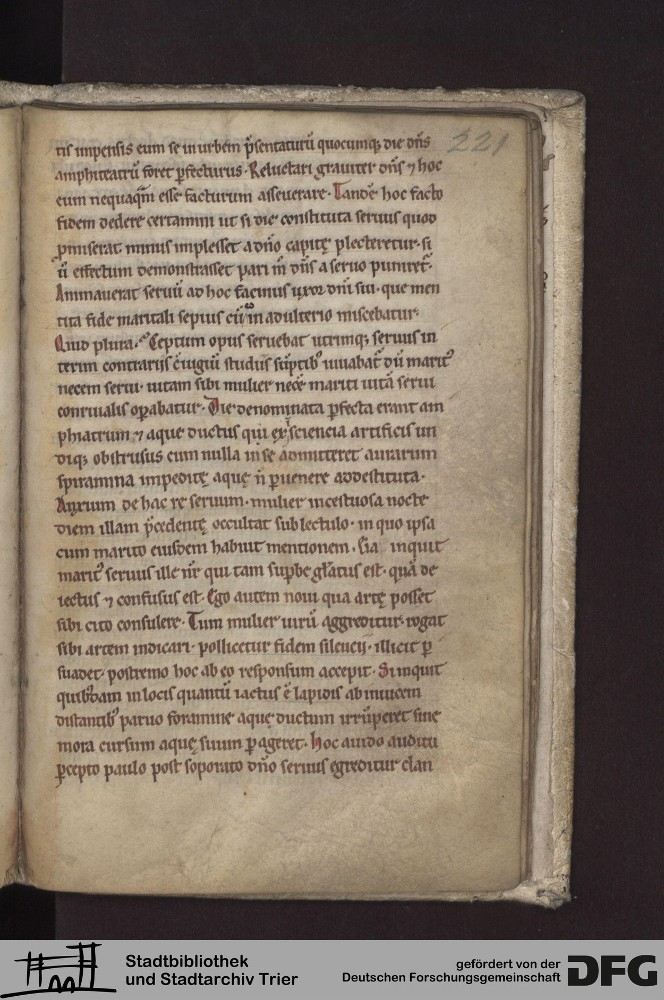 221
tis impensis eum se in urbem p̃sentaturũ quocumq; die dñs
amphiteatrũ foret ꝑfecturus. Reluctari grauiter dñs ⁊ hoc
eum nequaqm̃ esse facturum asseuerare. Tandẽ hoc facto
fidem dedere certamini ut si die constituta seruus quod
ꝓmiserat minus implesset a dño capitę plecteretur. si
ñ effectum demonstrasset pari m̃ dñs a seruo puniret̃.
Animauerat seruũ ad hoc facinus uxor dñi sui. que men
tita fide maritali sepius cũ eo in adulterio miscebatur.
Quid plura. Ceptum opus feruebat utrimq; seruus in
terim contrarijs c̃iugiũ studiis sũptib; iuuabat̃ dũ marit᷒
necem serui. uitam sibi mulier necẽ mariti uitã serui
conriualis oꝑabatur. Die denominata ꝑfecta erant am
phiatrum ⁊ aque ductus qui ex sciencia artificis un
diq; obstrusus cum nulla in se admitteret aurarum
spiramina impeditę aquę ñ ꝑuenere ad destituta.
Anxium de hac re seruum. mulier incestuosa nocte
diem illam p̃cedentę occultat sub lectulo. in quo ipsa
cum marito eiusdem habuit mentionem. Eia inquit
marit᷒ seruus ille nr̃ qui tam suꝑbe gl̃atus est. quã de
iectus ⁊ confusus est. Ego autem noui qua artę posset
sibi cito consulere. Tum mulier uirũ aggreditur. rogat
sibi artem indicari. pollicetur fidem silencij. illicit ꝑ
suadet. postremo hoc ab eo responsum accepit. Si inquit
quibusdam in locis quantũ iactus ẽ lapidis ab inuicem
distantib; paruo foramine aquę ductum irrũperet sine
mora cursum aquę suum ꝑageret. Hoc auido auditu
ꝑcepto paulo post soporato dño seruus egreditur clan
Stadtbibliothek
und Stadtarchiv Trier
gefördert von der
Deutschen Forschungsgemeinschaft
DFG